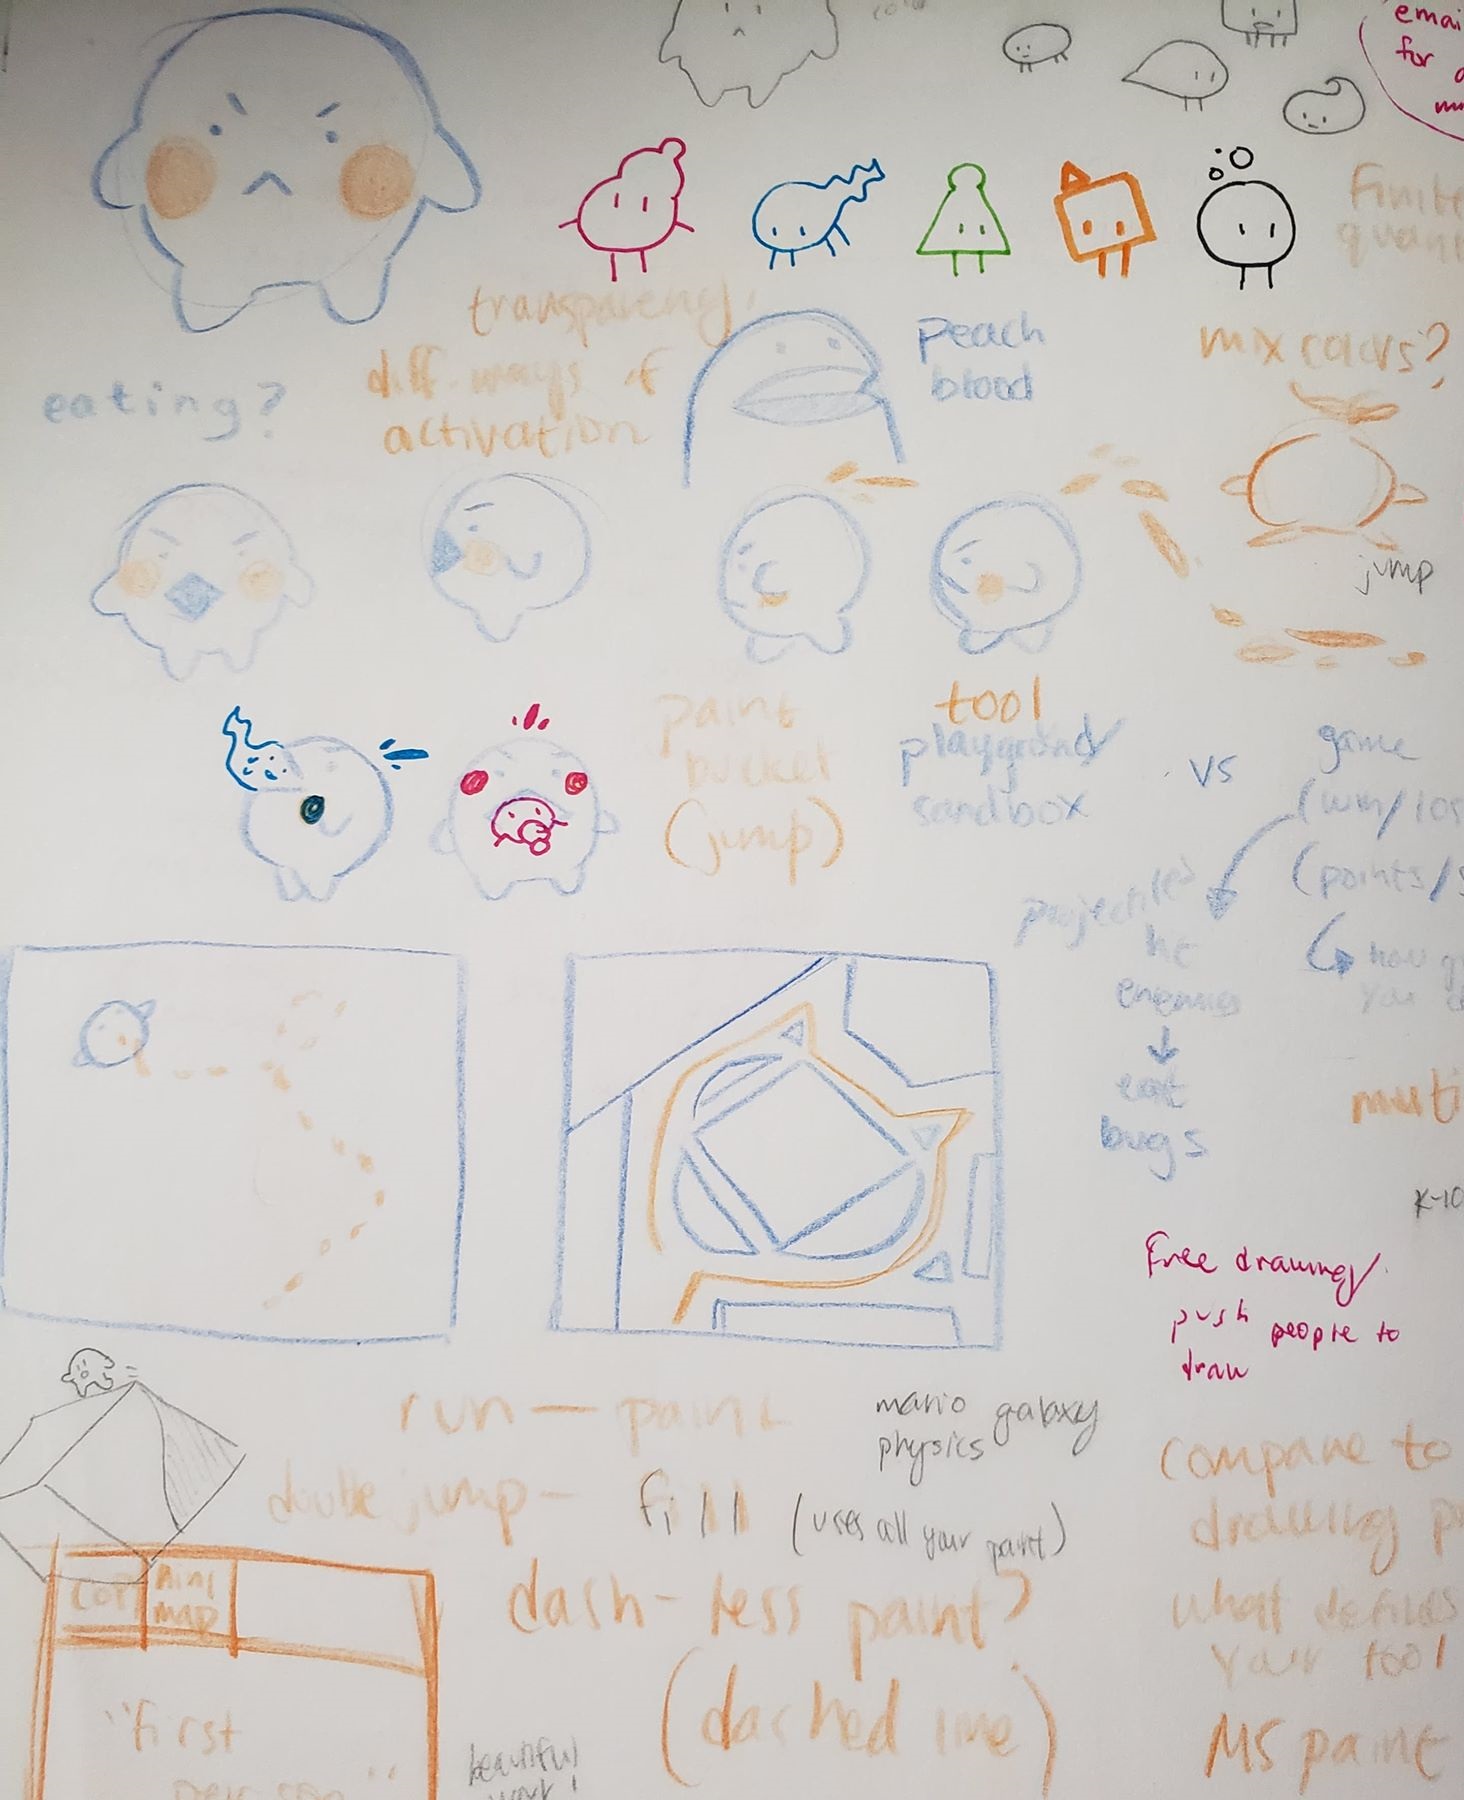 for
transparency,
eating?
diff. ways of
activation
peach
blood
mix colors?
jump
paint
bucket
(jump)
tool
playground/
sandbox
vs
game
(win/
(points/
how
you
projectiles
hit
enemies
eat
bugs
Free drawing/
push people to
draw
run — paint
mario galaxy
physics
double jump - fill (uses all your paint)
dash - less paint?
(dashed line)
compare to
drawing
what defines
your tool
MS paint
mini
map
"first
beautiful
work!